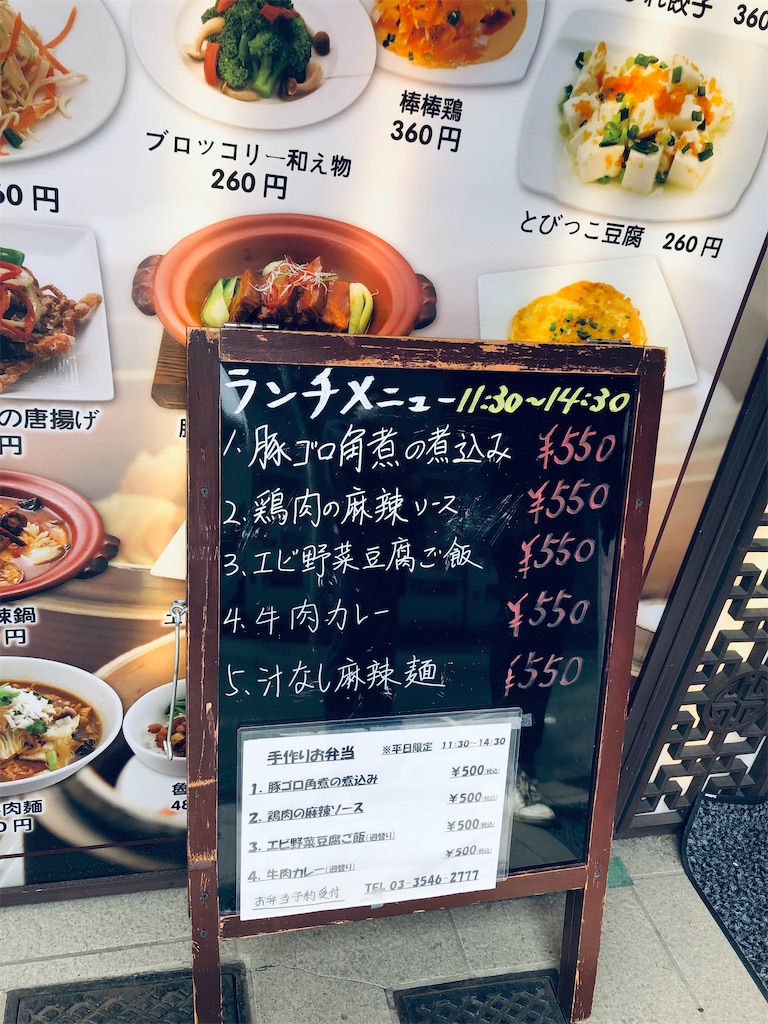 餃子 360
棒棒鶏
360円
ブロッコリー和え物
260円
60円
とびっこ豆腐 260円
の唐揚げ
円
辣鍋
円
肉麺
円
48
ランチメニュー 11:30～14:30
1. 豚ゴロ角煮の煮込み ¥550
2. 鶏肉の麻辣ソース ¥550
3、エビ野菜豆腐ご飯 ¥550
4. 牛肉カレー ¥550
5、汁なし麻辣麺 ¥550
手作りお弁当 ※平日限定 11:30~14:30
1. 豚ゴロ角煮の煮込み ¥500(税込)
2. 鶏肉の麻辣ソース ¥500(税込)
3. エビ野菜豆腐ご飯(週替り) ¥500(税込)
4. 牛肉カレー(週替り) ¥500(税込)
お弁当予約受付 TEL 03-3546-2777